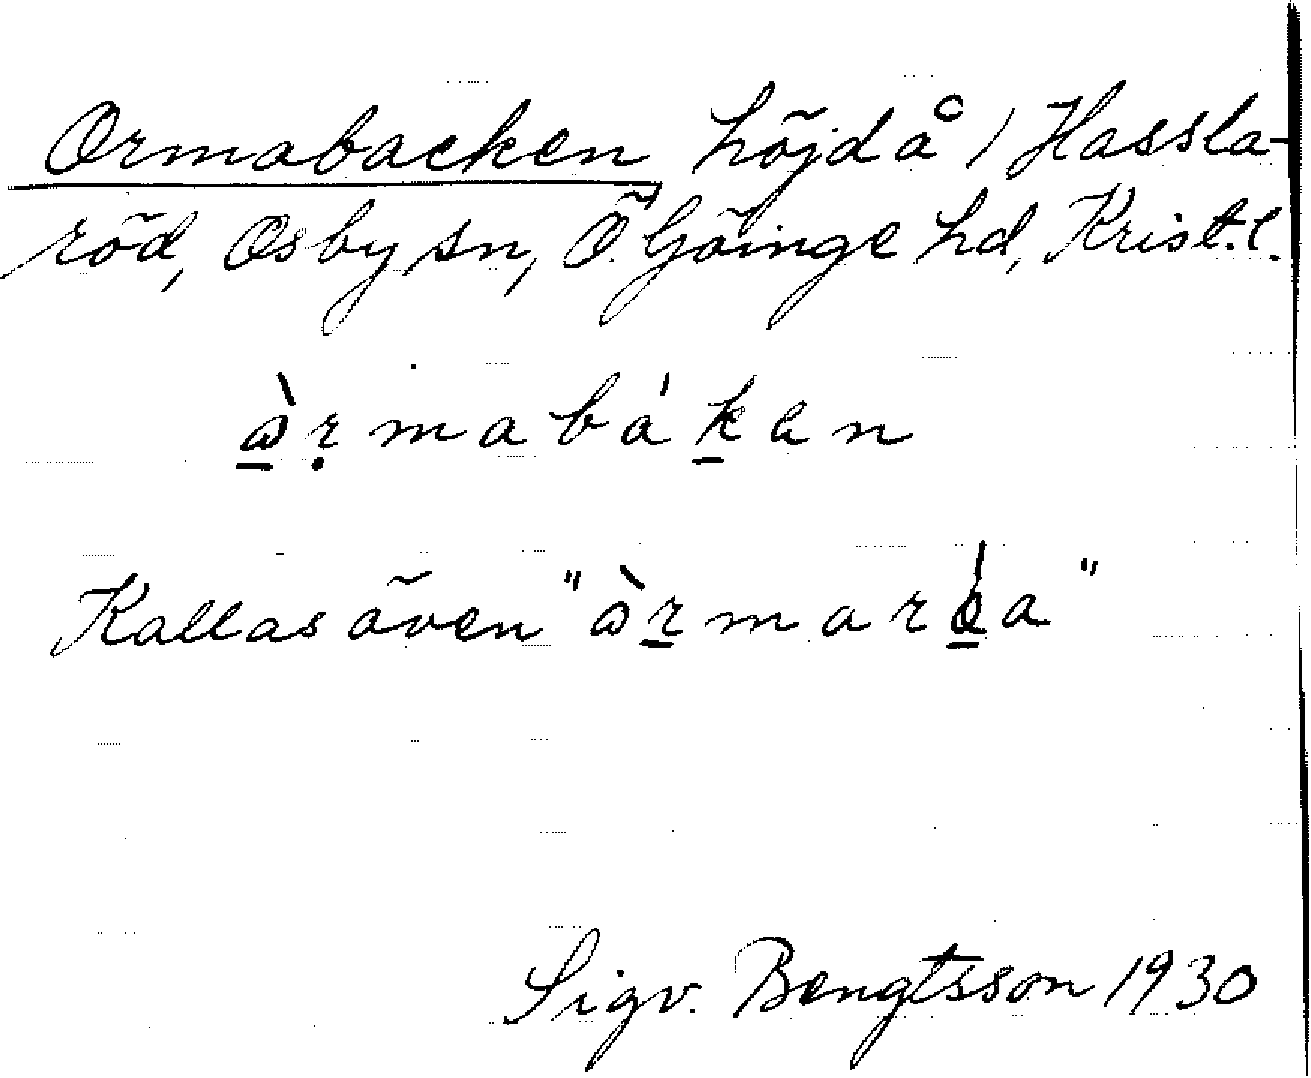 Ormabacken, höjd å 1 Hassla-
röd, Osby sn, Ö. Göinge hd, Krist.l.
ὼṛmabákan
Kallas även "ὼṟmarǫ́a"
Sigv. Bengtsson 1930